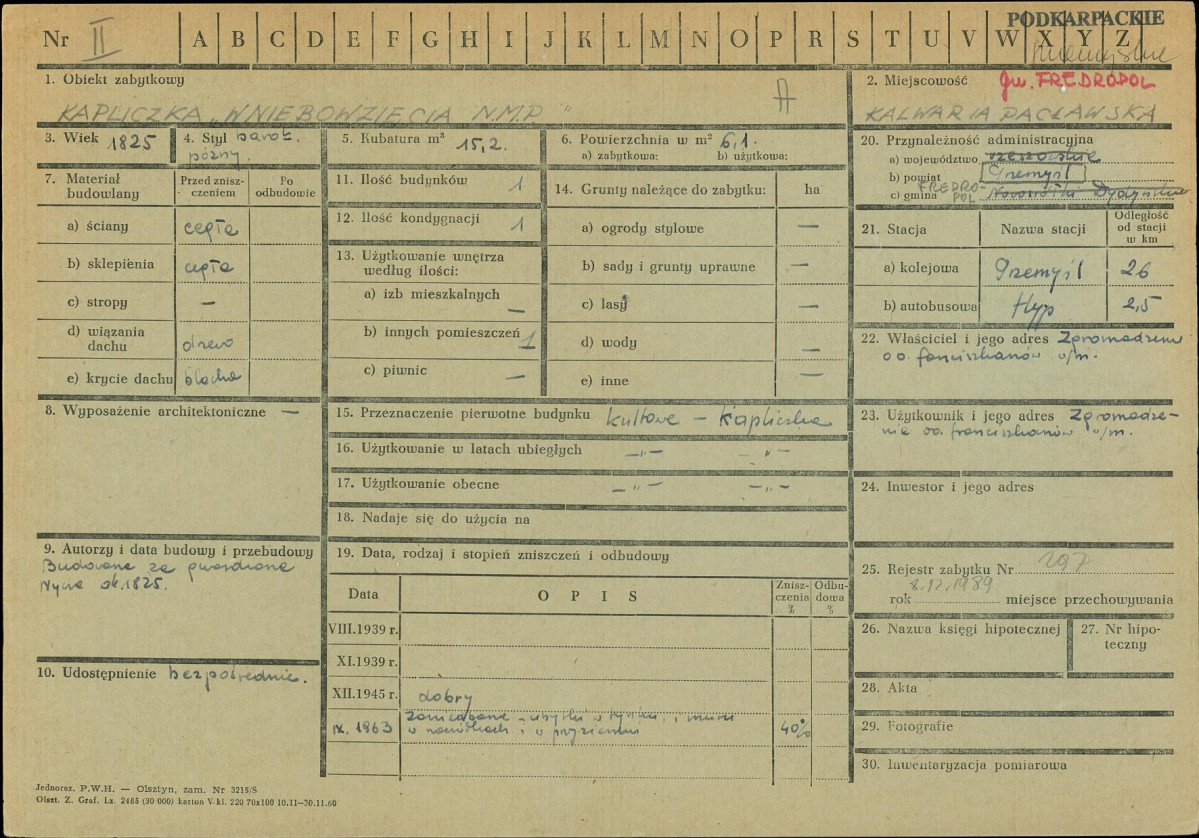 PODKARPACKIE
Nr II A B C D E F G H I J K L M N O P R S T U V W X Y Z
1. Obiekt zabytkowy
A
KAPLICZKA „WNIEBOWZIĘCIA N.M.P"
2. Miejscowość gm. FREDROPOL
KALWARIA PACŁAWSKA
3. Wiek 1825
4. Styl barok. późny.
5. Kubatura m³ 15,2.
6. Powierzchnia w m² 6,1.
a) zabytkowa: b) użytkowa:
7. Materiał budowlany
Przed zniszczeniem
Po odbudowie
a) ściany cegła
b) sklepienia cegła
c) stropy —
d) wiązania dachu drewo
e) krycie dachu blacha
8. Wyposażenie architektoniczne —
9. Autorzy i data budowy i przebudowy
Budowana za gwardiana
ok. 1825.
10. Udostępnienie bezpośrednie.
11. Ilość budynków 1
12. Ilość kondygnacji 1
13. Użytkowanie wnętrza według ilości:
a) izb mieszkalnych —
b) innych pomieszczeń 1
c) piwnic —
14. Grunty należące do zabytku: ha
a) ogrody stylowe —
b) sady i grunty uprawne —
c) lasy —
d) wody —
e) inne —
15. Przeznaczenie pierwotne budynku kultowe – kapliczka
16. Użytkowanie w latach ubiegłych –„– –„–
17. Użytkowanie obecne –„– –„–
18. Nadaje się do użycia na
19. Data, rodzaj i stopień zniszczeń i odbudowy
Data O P I S Zniszczenia % Odbudowa %
VIII.1939 r.
XI.1939 r.
XII.1945 r. dobry
IX. 1963 zaniedbana – ubytki w tynku i murze
w narożkach i w przyziemiu 40%
20. Przynależność administracyjna
a) województwo rzeszowskie
b) powiat Przemyśl
c) gmina FREDROPOL
21. Stacja Nazwa stacji Odległość od stacji w km
a) kolejowa Przemyśl 26
b) autobusowa Hyp 2,5
22. Właściciel i jego adres Zgromadzenie
oo. franciszkanów w/m.
23. Użytkownik i jego adres Zgromadze-
nie oo. franciszkanów w/m.
24. Inwestor i jego adres
25. Rejestr zabytku Nr 297
rok 8.12.1989 miejsce przechowywania
26. Nazwa księgi hipotecznej
27. Nr hipoteczny
28. Akta
29. Fotografie
30. Inwentaryzacja pomiarowa
Jednoraz. P.W.H. — Olsztyn, zam. Nr 3215/S
Olszt. Z. Graf. Lz. 2485 (30 000) karton V kl. 220 70x100 10.11—30.11.60